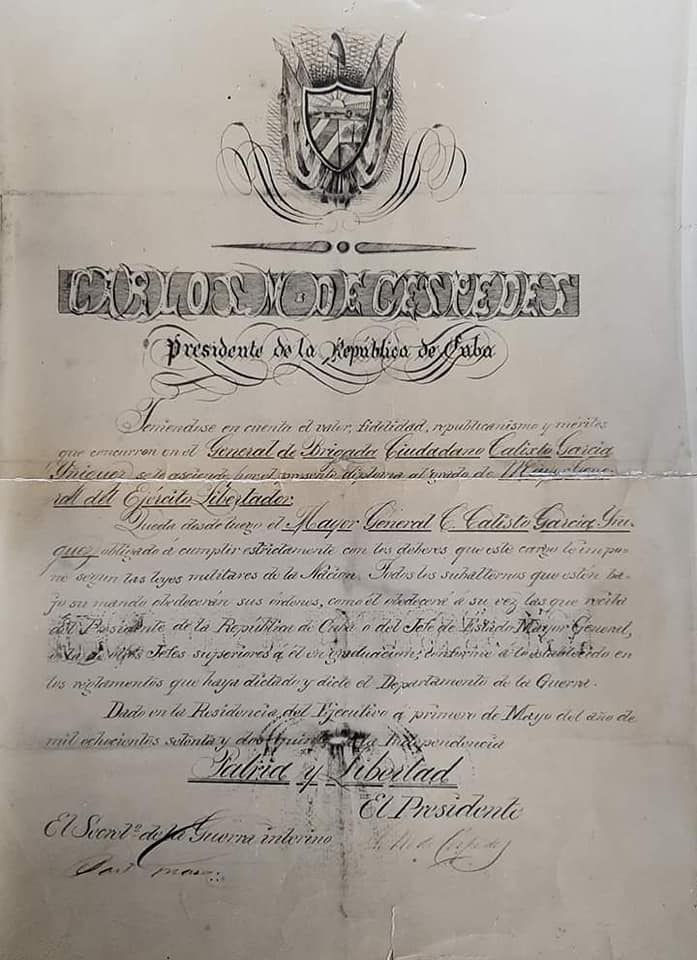 CARLOS M. DE CESPEDES
Presidente de la República de Cuba
Teniendose en cuenta el valor, fidelidad, republicanismo y méritos
que concurren en el General de Brigada Ciudadano Calixto Garcia
Yñiguez se le asciende por el presente diploma al grado de Mayor Gene-
ral del Ejército Libertador
Queda desde luego el Mayor General C. Calisto Garcia Yñi-
guez obligado á cumplir estrictamente con los deberes que este cargo le impo-
ne segun las leyes militares de la Nacion. Todos los subalternos que estén ba-
jo su mando obedecerán sus órdenes, como él obedecerá á su vez las que reciba
del Presidente de la República de Cuba o del Jefe de Estado Mayor General,
Jefes superiores á él en graduacion, conforme á lo establecido en
los reglamentos que haya dictado y dicte el Departamento de la Guerra.
Dado en la Residencia del Ejecutivo á primero de Mayo del año de
mil ochocientos setenta y dos, Independencia
Patria y Libertad
El Presidente
El Secret.º de la Guerra interino
de Cespedes